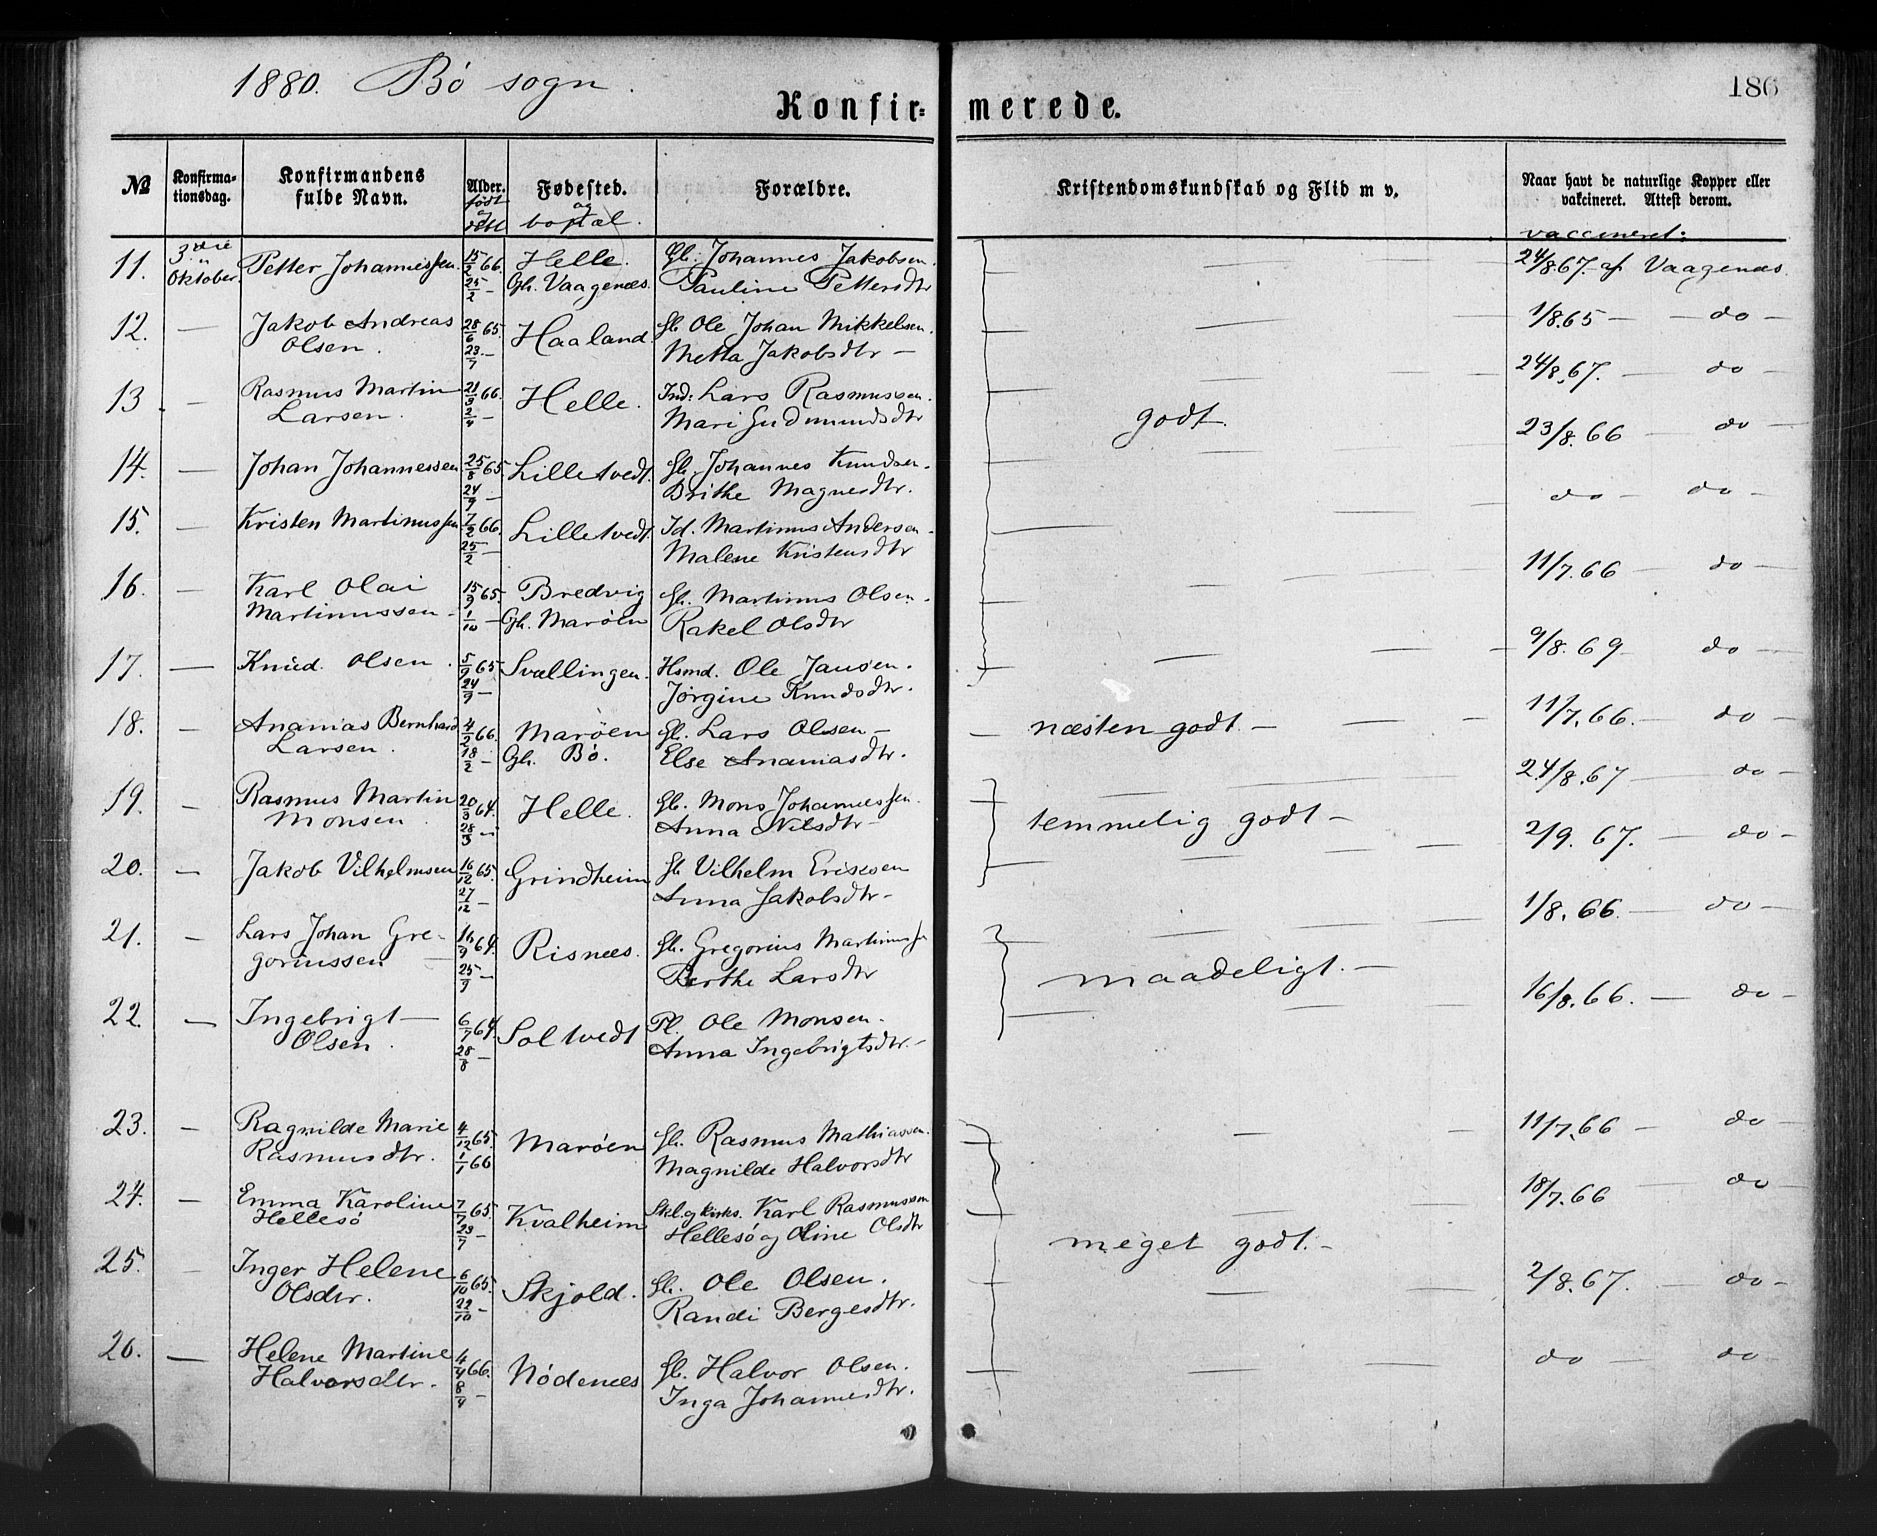 1880. Bø sogn.
186
Konfir= merede.
№ Konfirma-tionsdag. Konfirmandens fulde Navn. Alder. født og døbt Fødested. og bostæl. Forældre. Kristendomskundskab og Flid m v. Naar havt de naturlige Kopper eller vakcineret. Attest derom.
vaccineret:
11. 3die Oktober. Petter Johannessen. 15/2 66. 25/2 — Helle. Gh. Vaagenæs. Gb. Johannes Jakobsen. Pauline Pettersdtr — 24/8 67 – af Vaagenæs.
12. — Jakob Andreas Olsen. 28/6 65. 23/7 — Haaland. Gb. Ole Johan Mikkelsen. Metta Jakobsdtr — 1/8.65 — — do —
13. — Rasmus Martin Larsen. 21/3 66. 2/4 — Helle. Ind: Lars Rasmussen. Mari Gudmundsdtr godt. 24/8.67. — do —
14. — Johan Johannessen 25/8 65 24/9 — Lilletvedt. Gb. Johannes Knudsen. Brithe Magnesdtr. 23/8.66 — do —
15. — Kristen Martinussen 7/2 66. 25/2 — Lilletvedt. Id. Martinus Andersen. Malene Kristensdtr — do — do —
16. — Karl Olai Martinussen — 15/9 65. 1/10 — Bredvig Gh. Marøen Gb. Martinus Olsen. Rakel Olsdtr — 11/7.66 — do —
17. — Knud Olsen. 5/9 65 24/9 — Svællingen. Hsmd. Ole Jansen. Jørgine Knudsdtr. — 9/8.69 — do —
18. — Ananias Bernhard Larsen. 4/2 66. 18/2 — Marøen Gh. Bø. Gb. Lars Olsen — Else Ananiasdtr. — næsten godt. — 11/7.66. — do —
19. — Rasmus Martin Monsen. 20/3 64. 28/3 — Helle. Gb. Mons Johannessen. Anna Nilsdtr — temmelig godt — 24/8.67 — do —
20. — Jakob Vilhelmsen 16/12 65. 27/12 — Grindheim Gb Vilhelm Ericsen Anna Jakobsdtr — 2/9.67. — do —
21. — Lars Johan Gregoriussen 16/9 64. 25/9 — Risnæs. Gb. Gregorius Martinussen Berthe Larsdtr maadeligt. — 1/8.66. — do —
22. — Ingebrigt — Olsen. 6/7 64. 28/8 — Soltvedt Pl. Ole Monsen. Anna Ingebrigtsdtr. — 16/8.66. — do —
23. — Ragnilde Marie Rasmusdtr. 4/12 65. 1/1 66 Marøen Gb. Rasmus Mathiassen. Magnilde Halvorsdtr — 11/7.66 — do —
24. — Emma Karoline Hellesø 7/7 65. 23/7 — Kvalheim Skl. og Kirks. Karl Rasmussen Hellesø og Oline Olsdtr meget godt. — 18/7.66 — do —
25. — Inger Helene Olsdtr. 6/10 65. 22/10 — Skjold. Gb. Ole Olsen. Randi Bergesdtr. — 2/8.67. — do —
26. — Helene Martine Halvorsdtr. 4/4 66. 8/4 — Nødenæs Gb. Halvor Olsen. Inga Johannesdtr. — do — do —